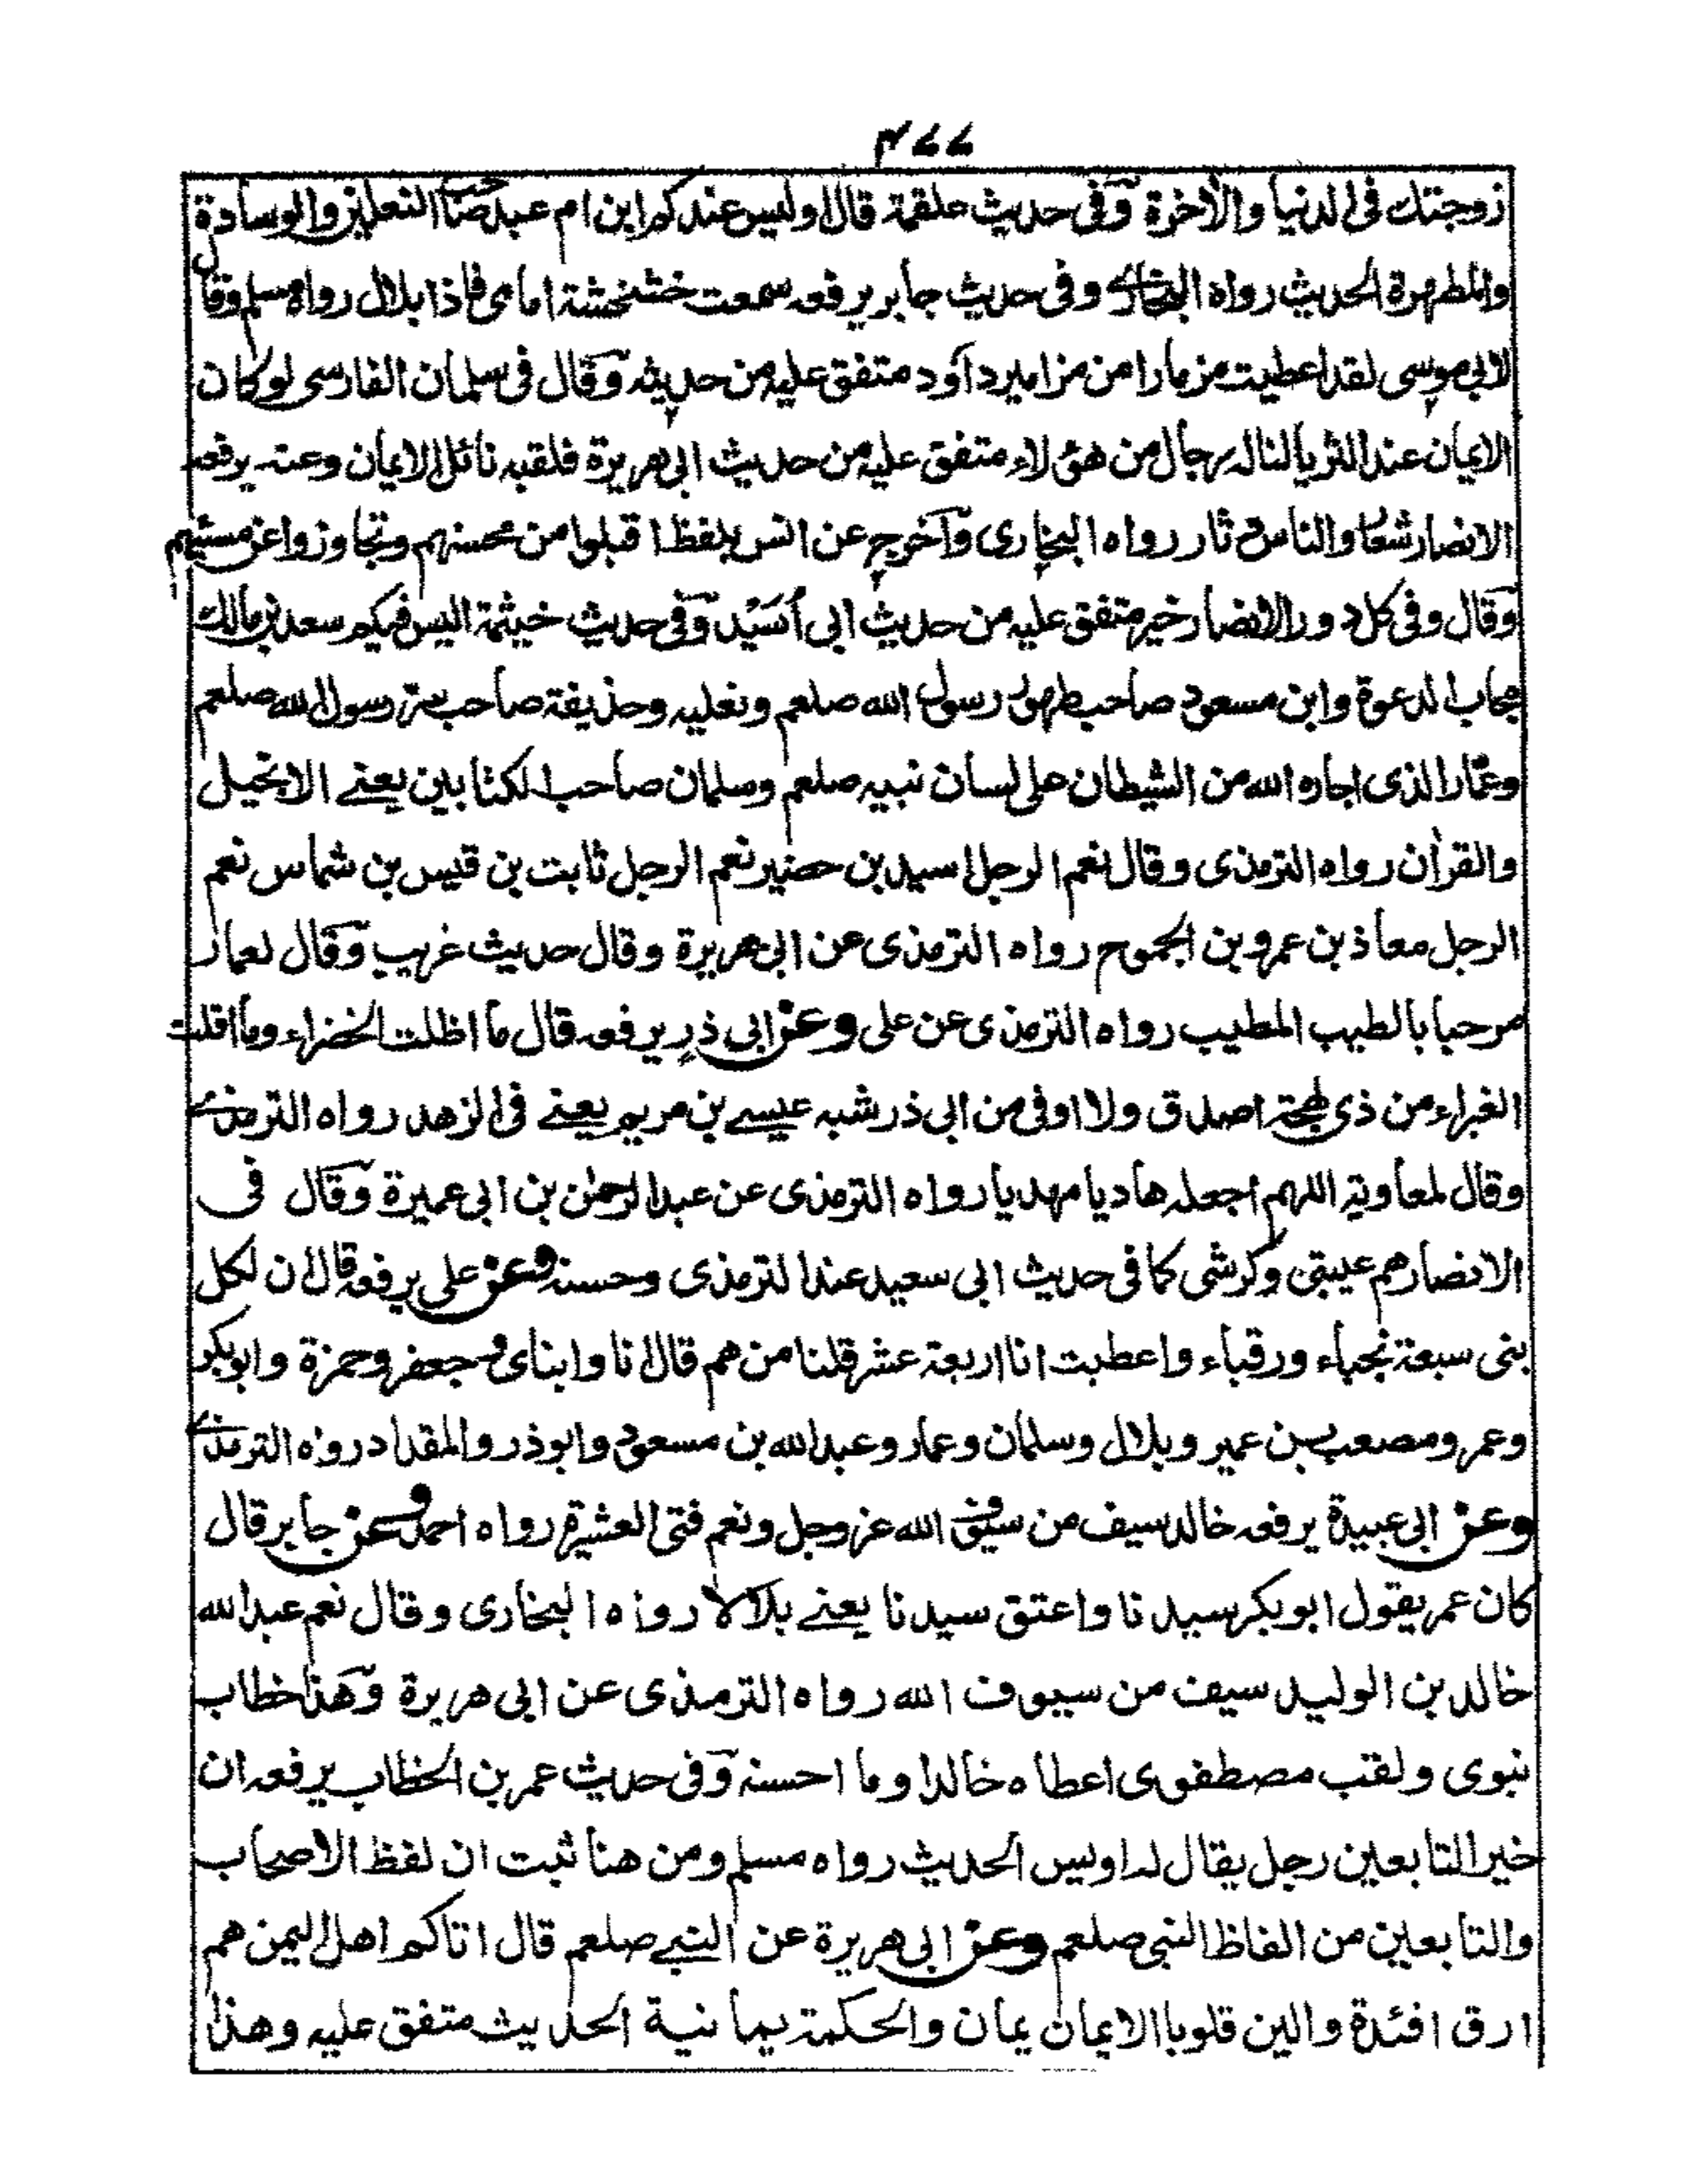 ٤٧٧
زوجتك فى الدنيا والأخرة وفى حديث علقمة قال اوليس عندكم ابن ام عبد صاحب النعلين والوسادة
والمطهرة الحديث رواه البخارى وفى حديث جابر يرفعه سمعت خشخشة امامى فاذا بلال رواه مسلم وقال
لابى موسى لقد اعطيت مزمارا من مزامير داود متفق عليه من حديثه وقال فى سلمان الفارسى لو كان
الايمان عند الثريا لناله رجال من هؤلاء متفق عليه من حديث ابى هريرة فلقبه نائل الايمان وعنه يرفعه
الانصار شعار والناس دثار رواه البخارى وآخرج عن انس بلفظ اقبلوا من محسنهم وتجاوزوا عن مسئيهم
وقال وفى كل دور الانصار خير متفق عليه من حديث ابى أسَيْد وفى حديث خيثمة اليس فيكم سعد بن مالك
مجاب الدعوة وابن مسعود صاحب طهور رسول الله صلعم ونعليه وحذيفة صاحب سر رسول الله صلعم
وعمار الذى اجاره الله من الشيطان على لسان نبيه صلعم وسلمان صاحب الكتابين يعنے الانجيل
والقرأن رواه الترمذى وقال نعم الرجل اسيد بن حضير نعم الرجل ثابت بن قيس بن شماس نعم
الرجل معاذ بن عمرو بن الجموح رواه الترمذى عن ابى هريرة وقال حديث غريب وقال لعمار
مرحبا بالطيب المطيب رواه الترمذى عن على وعن ابى ذر يرفعه قال ما اظلت الخضراء وما اقلت
الغبراء من ذى لهجة اصدق ولا اوفى من ابى ذر شبه عيسے بن مريم يعنے فى الزهد رواه الترمذے
وقال لمعاوية اللهم اجعله هاديا مهديا رواه الترمذى عن عبدالرحمٰن بن ابى عميرة وقال فى
الانصار هم عيبتى وكرشى كما فى حديث ابى سعيد عند الترمذى وحسنه وعن على يرفعه قال ان لكل
نبى سبعة نجباء ورقباء واعطيت انا اربعة عشر قلنا من هم قال انا وابناى وجعفر وحمزة وابوبكر
وعمر ومصعب بن عمير وبلال وسلمان وعمار وعبدالله بن مسعود وابوذر والمقداد رواه الترمذے
وعن ابى عبيدة يرفعه خالد سيف من سيوف الله عز وجل ونعم فتى العشيرة رواه احمد وعن جابر قال
كان عمر يقول ابوبكر سيدنا واعتق سيدنا يعنے بلالا رواه البخارى وقال نعم عبدالله
خالد بن الوليد سيف من سيوف الله رواه الترمذى عن ابى هريرة وهذا خطاب
نبوى ولقب مصطفوى اعطاه خالدا وما احسنه وفى حديث عمر بن الخطاب يرفعه ان
خير التابعين رجل يقال له اويس الحديث رواه مسلم ومن هنا ثبت ان لفظ الاصحاب
والتابعين من الفاظ النبى صلعم وعن ابى هريرة عن النبے صلعم قال اتاكم اهل اليمن هم
ارق افئدة والين قلوبا الايمان يمان والحكمة يمانية الحديث متفق عليه وهذا